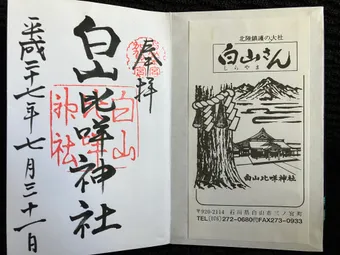 奉拝
白山比咩神社
白山
比咩
神社
平成二十七年七月三十一日
北陸鎮護の大社
白山さん
しらやま
白山比咩神社
〒920-2114 石川県白山市三ノ宮町
TEL(076)272-0680㈹FAX273-0933